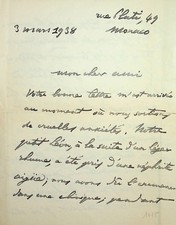 rue Plati 49
3 mars 1938 Monaco
mon cher ami
Votre bonne lettre m'est arrivée
au moment où nous sortions
de cruelles anxiétés. Notre
petit Léon, à la suite d'un léger
rhume, a été pris d'une néphrite
aigüe; nous avons dû l'emmener
dans une clinique, pendant